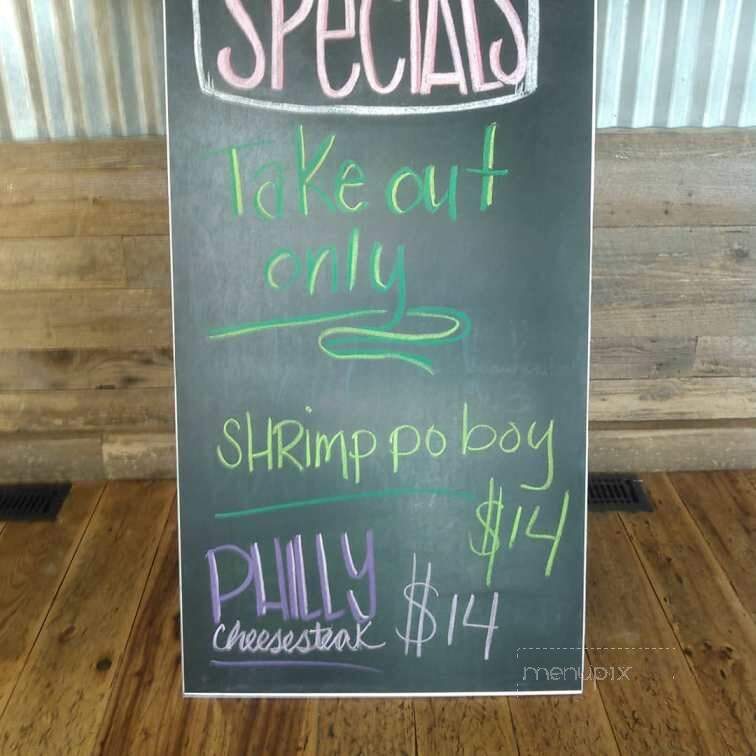 SPECIALS
Take out
only
SHRimp po boy
$14
PHILLY
cheesesteak $14
menupix